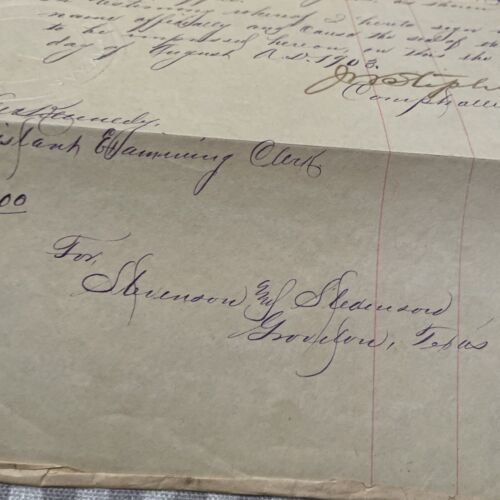 In testimony whereof I hereto sign
name officially and cause the seal of
to be impressed hereon, on this the
day of August A.D. 1908.
J W Steph
Comptroller
Kennedy,
istant Examining Clerk
00
For,
Stevenson and Stevenson
Texas